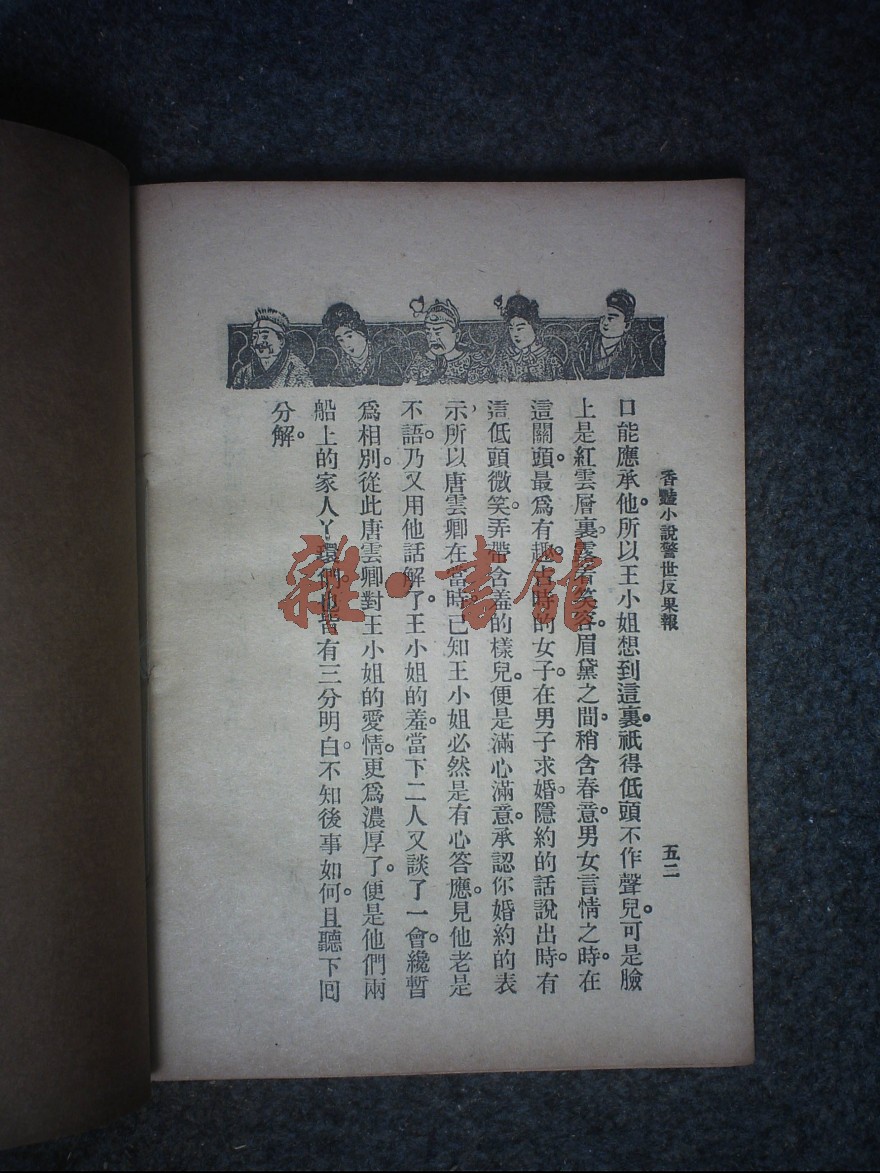 香豔小說警世反果報
五二
口能應承他。所以王小姐想到這裏。祇得低頭不作聲兒。可是臉
上是紅雲層裏。露着笑容。眉黛之間。稍含春意。男女言情之時。在
這關頭。最爲有趣。古時的女子。在男子求婚。隱約的話說出時。有
這低頭微笑。弄帶含羞的樣兒。便是滿心滿意。承認你婚約的表
示。所以唐雲卿在當時。已知王小姐必然是有心答應。見他老是
不語。乃又用他話解了。王小姐的羞。當下二人又談了一會。纔暫
爲相別。從此唐雲卿對王小姐的愛情。更爲濃厚了。便是他們兩
船上的家人丫環們。也皆有三分明白。不知後事如何。且聽下回
分解。
雜·書館